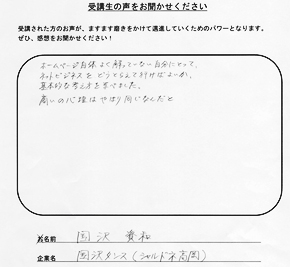 受講生の声をお聞かせください
受講された方のお声が、ますます磨きをかけて邁進していくためのパワーとなります。
ぜひ！感想をお聞かせください！
ホームページ自体よく解っていない自分にとって、
ネットビジネスをどうとらえて行けばよいか、
基本的な考え方を学べました。
高いの心理はやはり同じなんだと
お名前 岡沢 貴和
企業名 岡沢タンス（シャルドネ高岡）